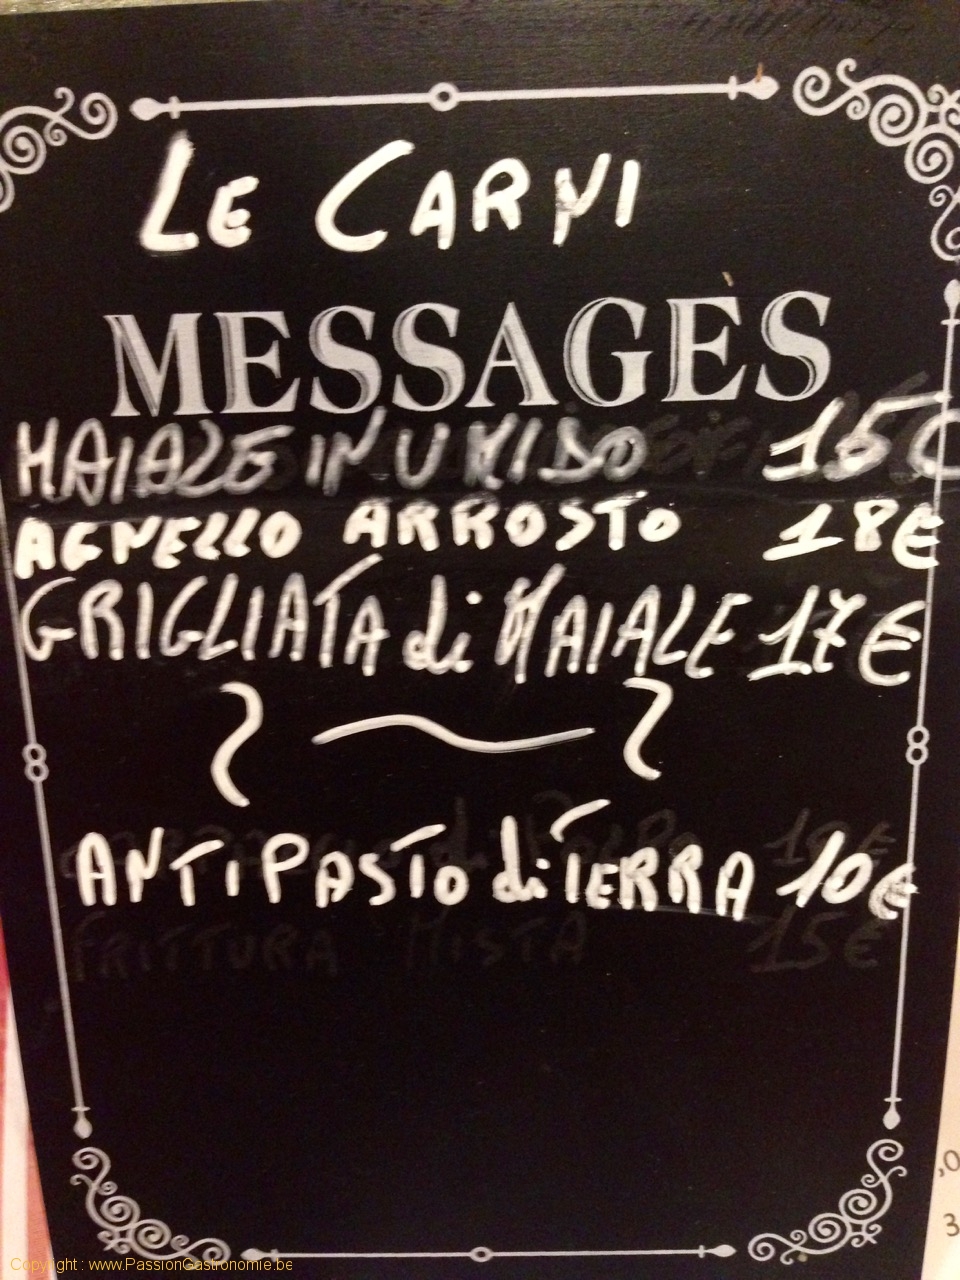 LE CARNI
MESSAGES
MAIALE IN UMIDO 15€
AGNELLO ARROSTO 18€
GRIGLIATA di MAIALE 17€
ANTIPASTO di TERRA 10€
FRITTURA MISTA 15€
,0
3
Copyright : www.PassionGastronomie.be